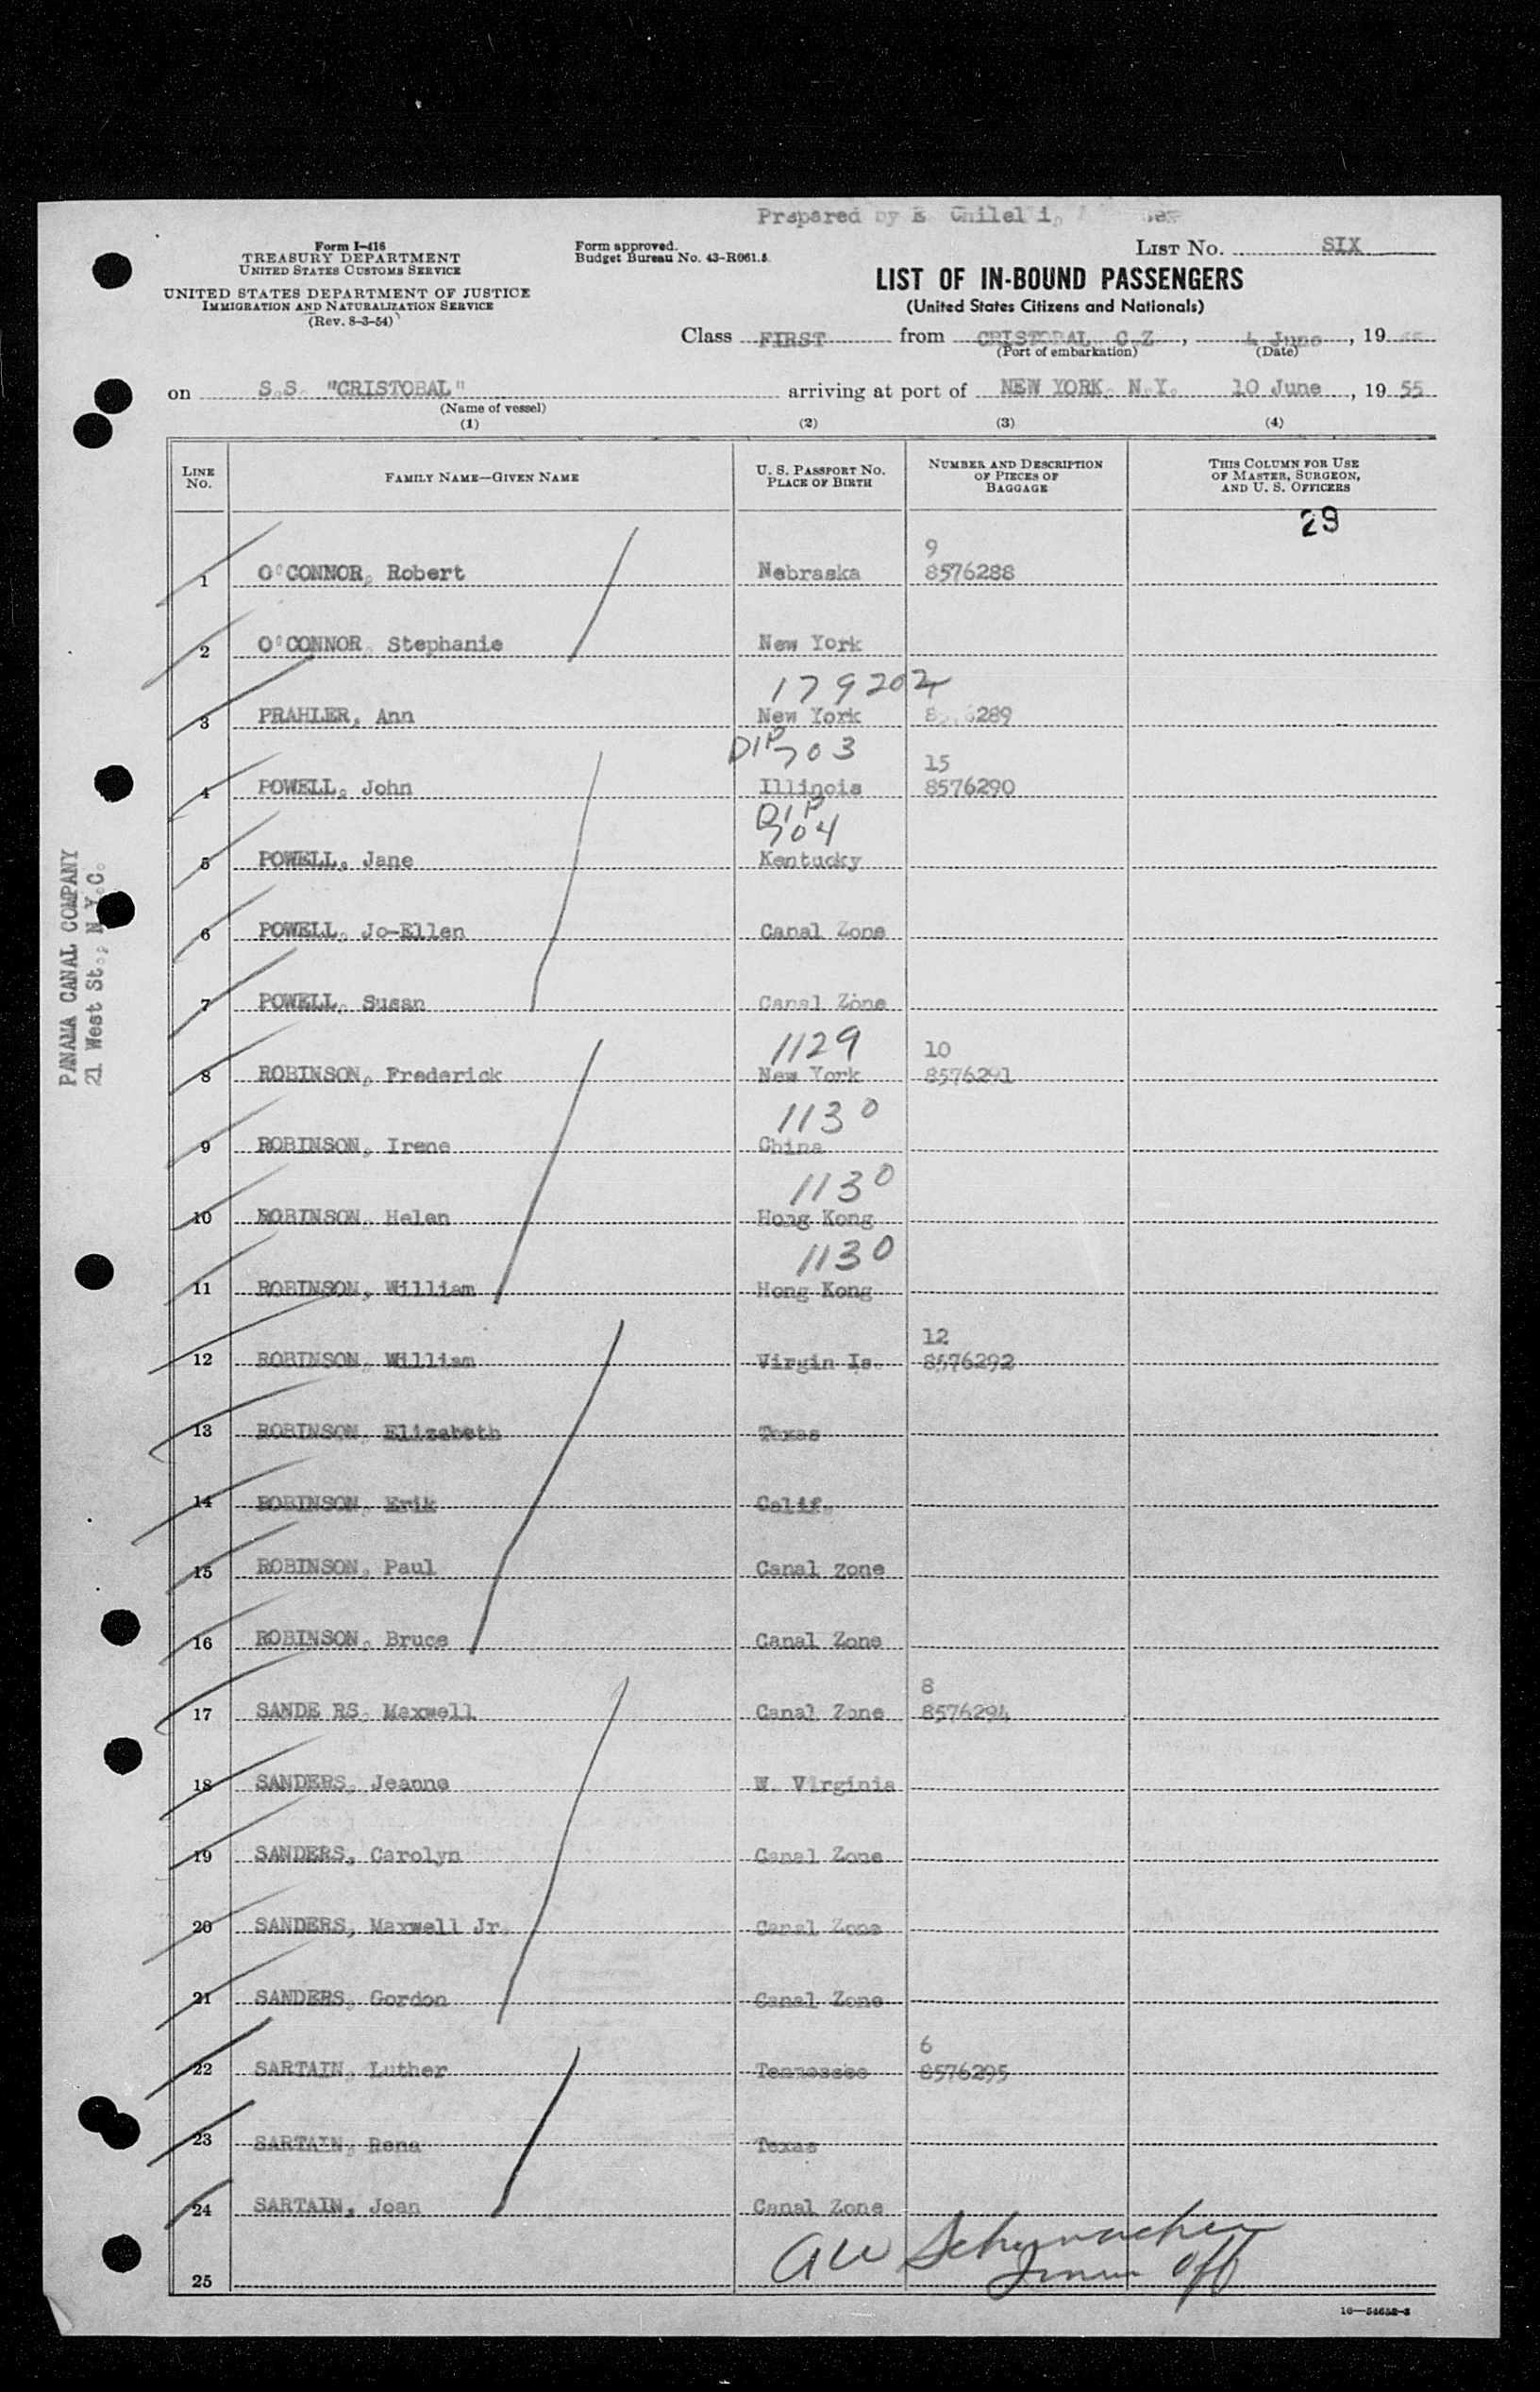 Prepared by E Chilel i,
Form I-418
TREASURY DEPARTMENT
UNITED STATES CUSTOMS SERVICE
UNITED STATES DEPARTMENT OF JUSTICE
IMMIGRATION AND NATURALIZATION SERVICE
(Rev. 8-3-54)
Form approved.
Budget Bureau No. 43-R061.5.
LIST NO. SIX
LIST OF IN-BOUND PASSENGERS
(United States Citizens and Nationals)
Class FIRST from CRISTOBAL, C.Z., 4 June, 19
(Port of embarkation) (Date)
on S.S. "CRISTOBAL" arriving at port of NEW YORK, N.Y. 10 June, 19 55
(Name of vessel)
(1) (2) (3) (4)
LINE NO. FAMILY NAME—GIVEN NAME U. S. PASSPORT NO. PLACE OF BIRTH NUMBER AND DESCRIPTION OF PIECES OF BAGGAGE THIS COLUMN FOR USE OF MASTER, SURGEON, AND U. S. OFFICERS
29
9
1 O'CONNOR, Robert Nebraska 8576288
2 O'CONNOR, Stephanie New York
179202
3 PRAHLER, Ann New York 289
DIP 703
15
4 POWELL, John Illinois 8576290
DIP
704
5 POWELL, Jane Kentucky
6 POWELL, Jo-Ellen Canal Zone
7 POWELL, Susan Canal Zone
1129 10
8 ROBINSON, Frederick New York 8576291
1130
9 ROBINSON, Irene China
1130
10 ROBINSON, Helen Hong Kong
1130
11 ROBINSON, William Hong Kong
12
12 ROBINSON, William Virgin Is. 8576292
13 ROBINSON, Elizabeth Texas
14 ROBINSON, Erik Calif.
15 ROBINSON, Paul Canal zone
16 ROBINSON, Bruce Canal Zone
8
17 SANDE RS, Maxwell Canal Zone 8576294
18 SANDERS, Jeanne W. Virginia
19 SANDERS, Carolyn Canal Zone
20 SANDERS, Maxwell Jr. Canal Zone
21 SANDERS, Gordon Canal Zone
6
22 SARTAIN, Luther Tennessee 8576295
23 SARTAIN, Rena Texas
24 SARTAIN, Joan Canal Zone
AW Schumacher
Imm Off
25
16—54652-2
PANAMA CANAL COMPANY
21 West St., N.Y.C.